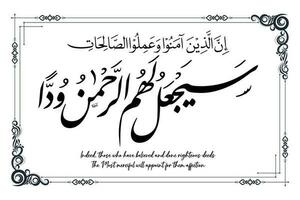 إِنَّ الَّذِينَ آمَنُوا وَعَمِلُوا الصَّالِحَاتِ
سَيَجْعَلُ لَهُمُ الرَّحْمَٰنُ وُدًّا
Indeed, those who have believed and done righteous deeds
The Most merciful will appoint for them affection.